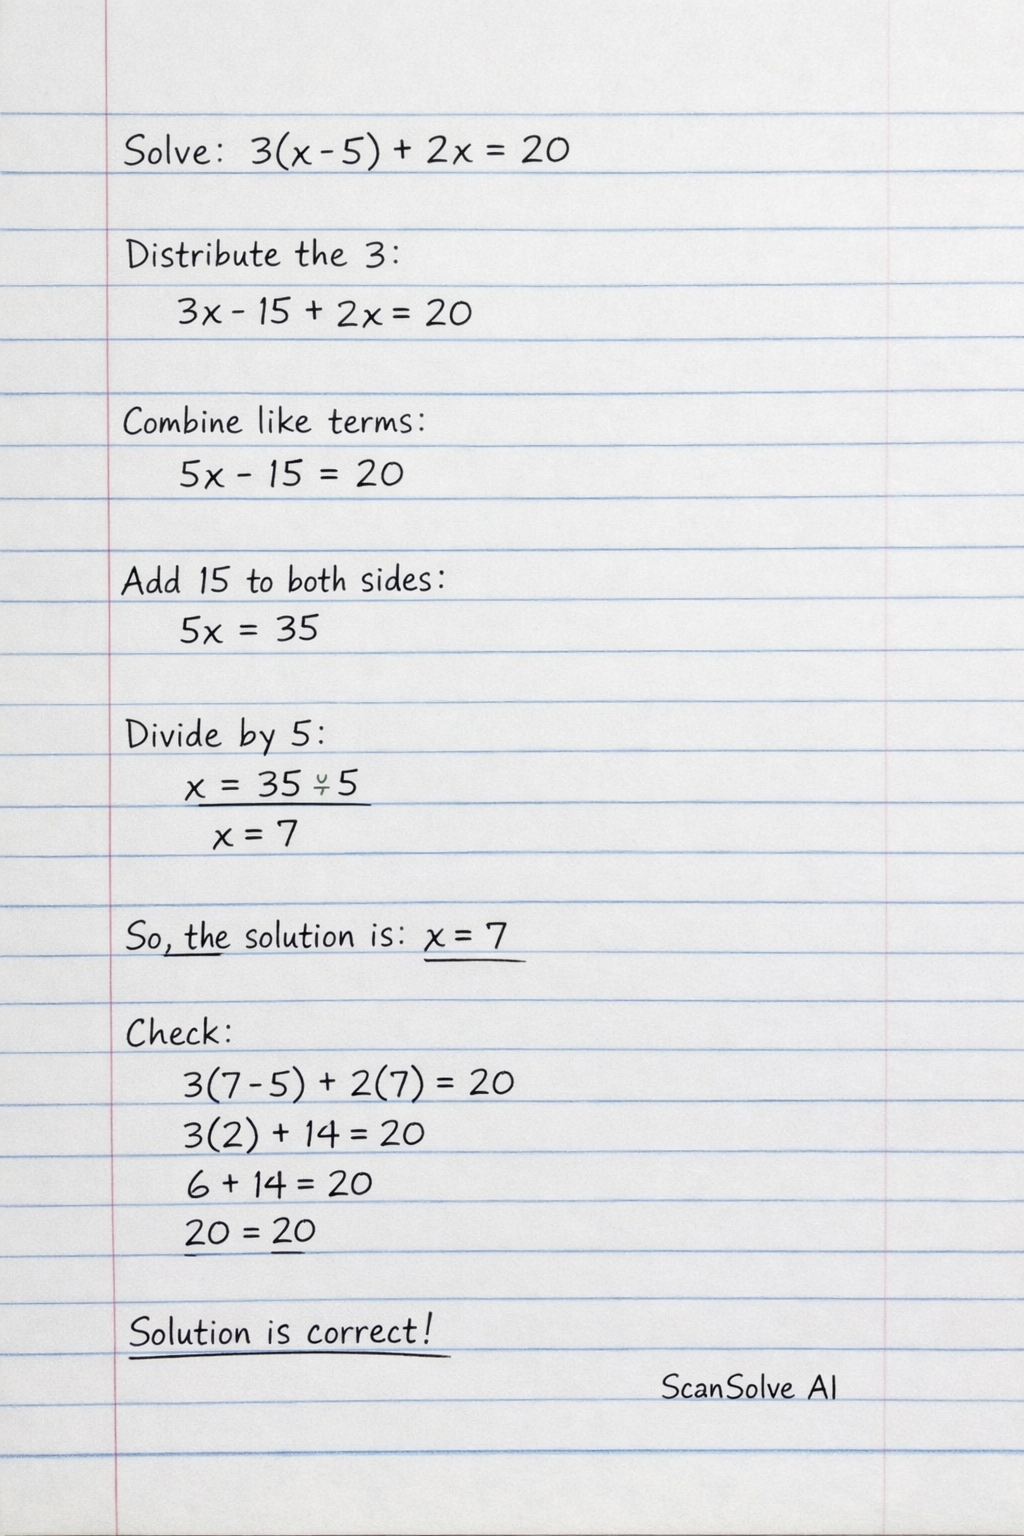 Solve: 3(x-5) + 2x = 20
Distribute the 3:
3x - 15 + 2x = 20
Combine like terms:
5x - 15 = 20
Add 15 to both sides:
5x = 35
Divide by 5:
x = 35 ÷ 5
x = 7
So, the solution is: x = 7
Check:
3(7-5) + 2(7) = 20
3(2) + 14 = 20
6 + 14 = 20
20 = 20
Solution is correct!
ScanSolve AI